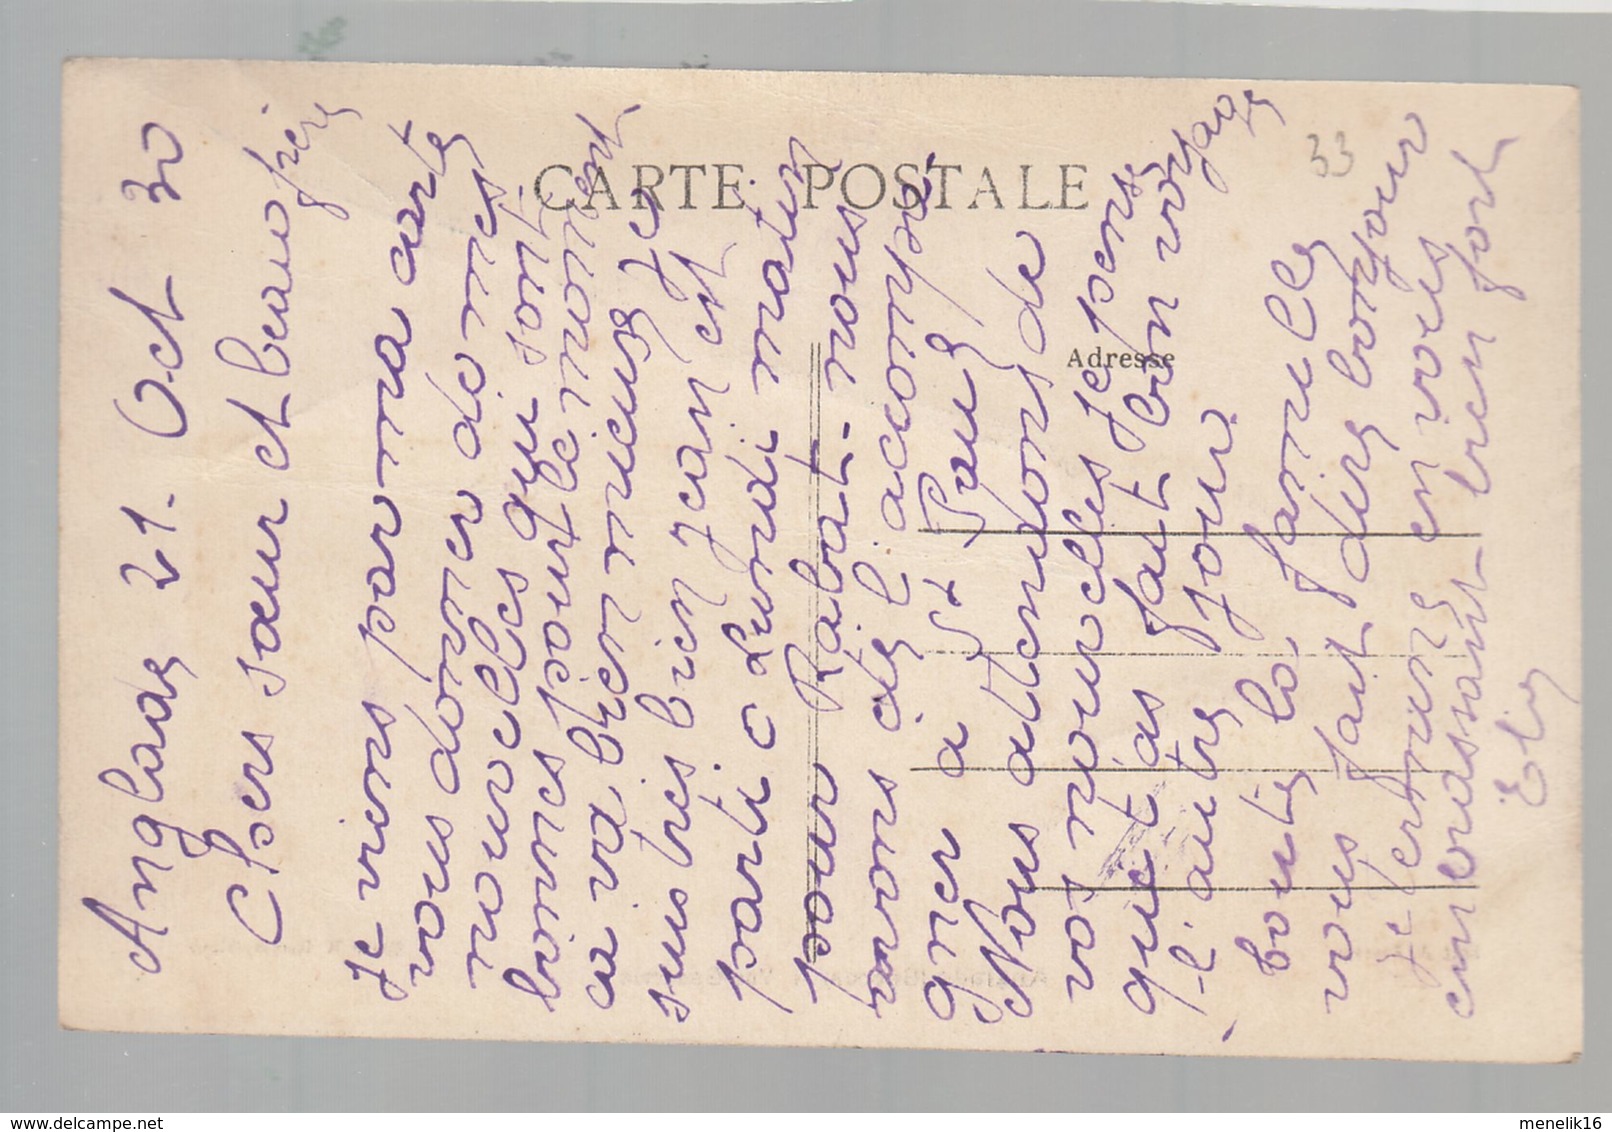 CARTE POSTALE
Adresse
33
Anglars 21. Oct 30
Chers sœur et beau frère
Je viens par ma carte
vous donner de mes
nouvelles qui sont
bonnes pour le moment
ca va bien mieux Je
suis très bien Jean est
parti Lundi matin
pour Rabat. nous
avons l'acompa
gner a St Paul
Nous attendons de
vos nouvelles Je pense
que tas fait bon voyage
l'autre jour.
toute la famille
vous fait dire bonjour
Je termine en vous
embrassant bien fort
© delcampe.net
menelik16